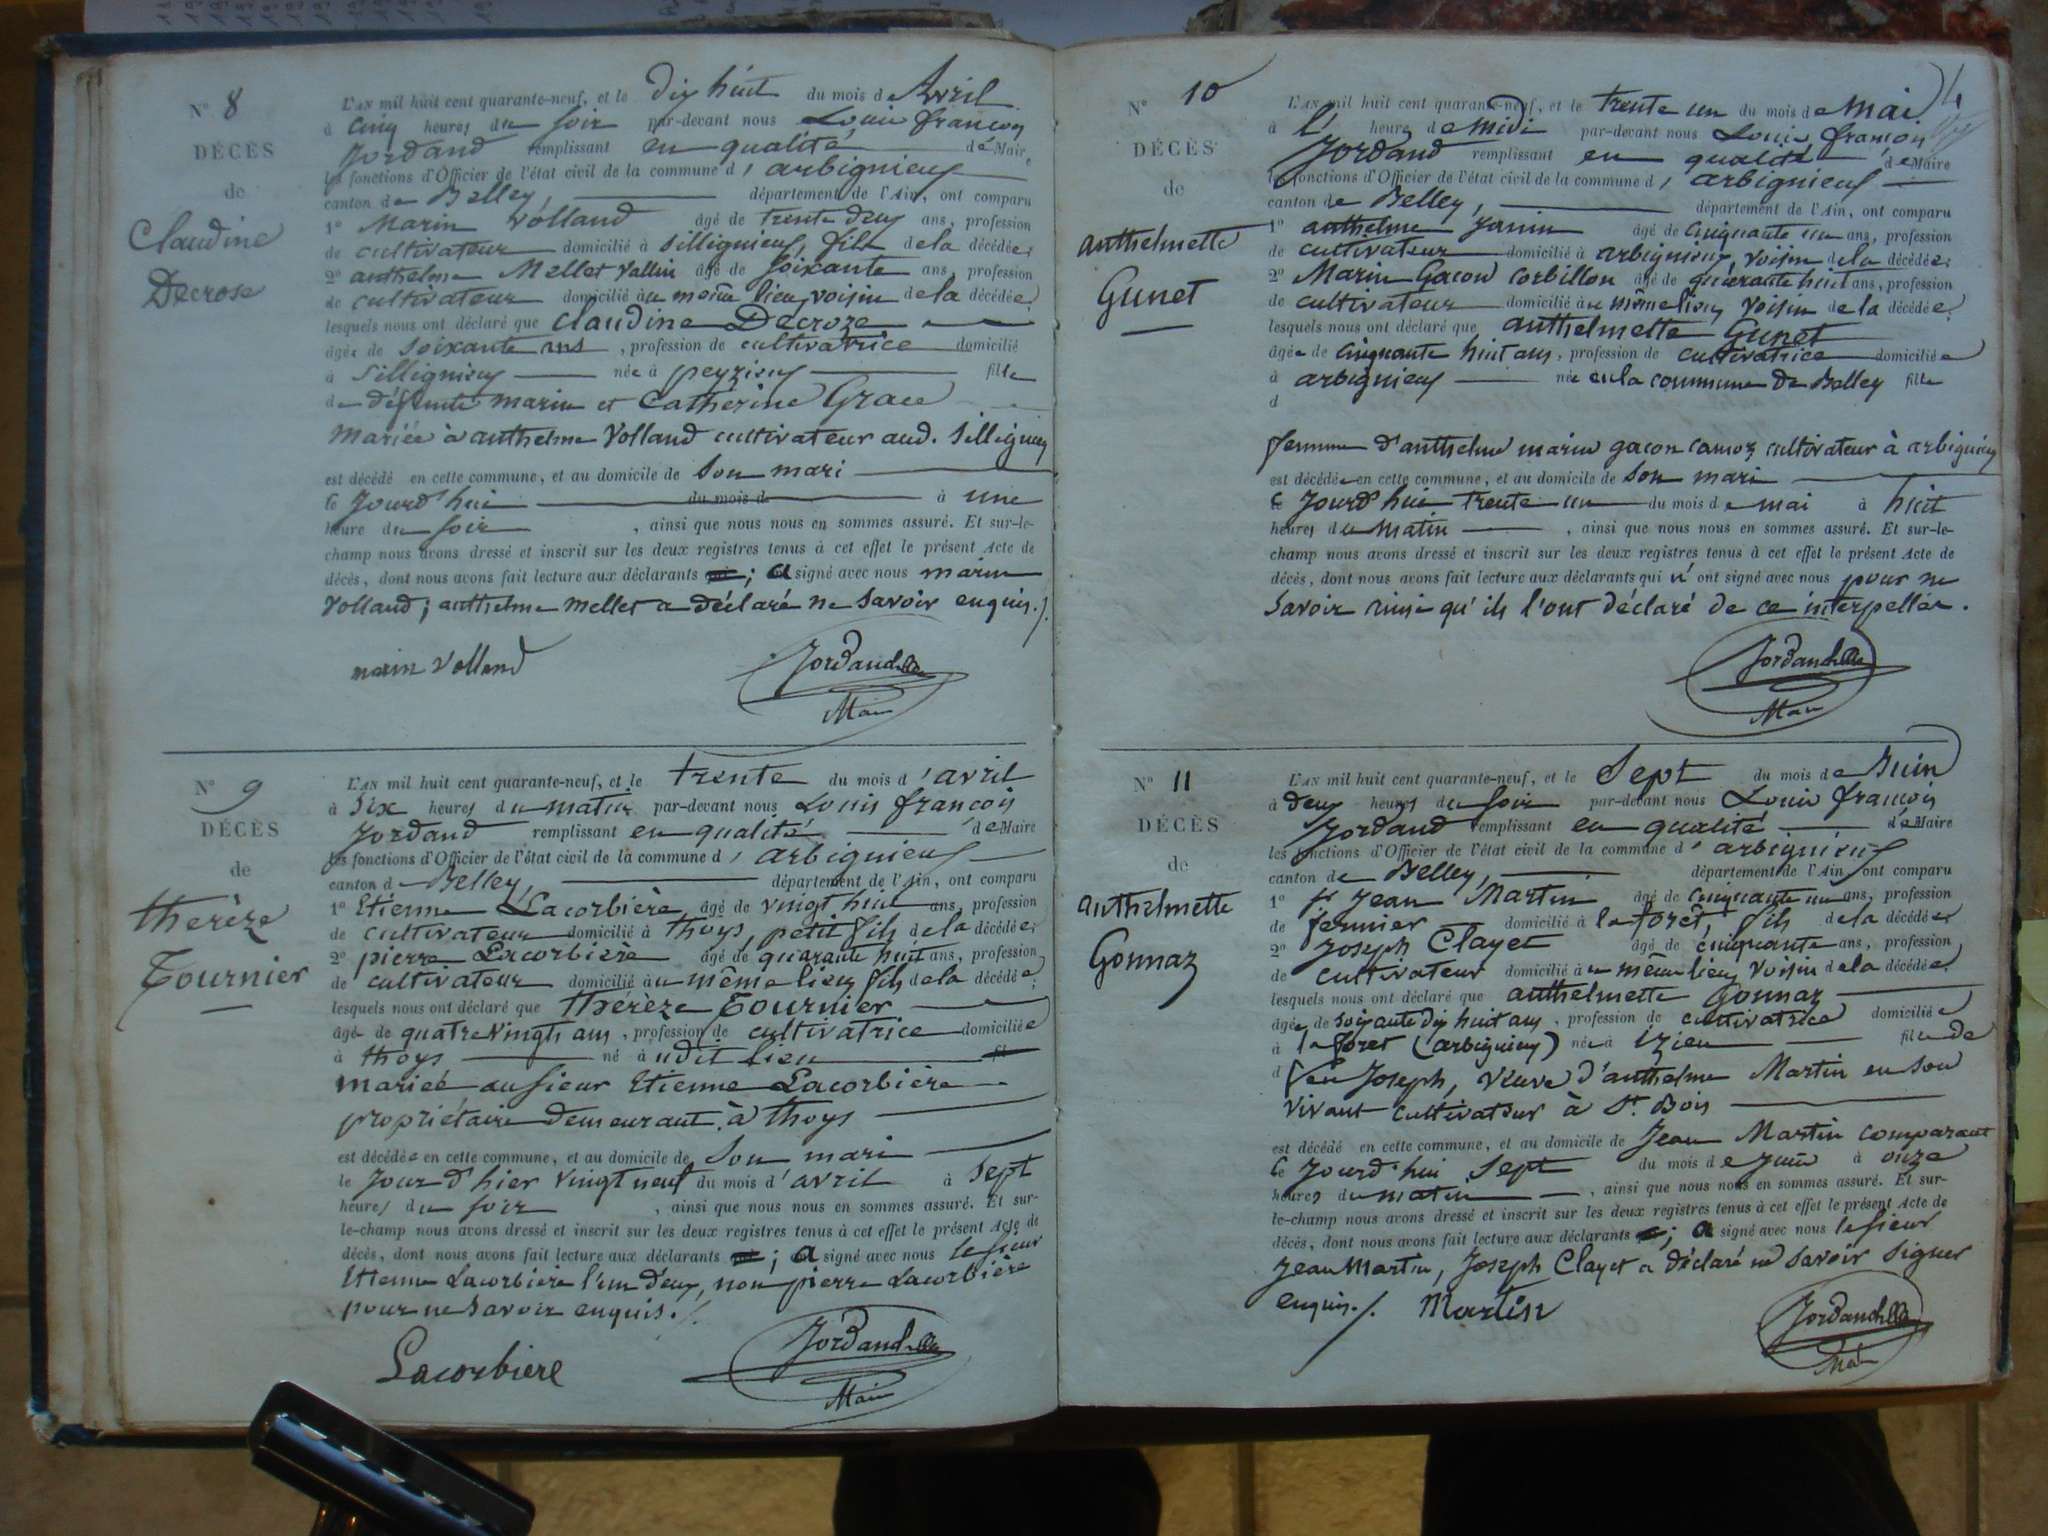 N° 8
DÉCÈS
de
Claudine
Decrose
L'AN mil huit cent quarante-neuf, et le dix huit du mois d'Avril
à cinq heures du soir par-devant nous Louis françois
Jordand remplissant en qualité de Maire
les fonctions d'Officier de l'état civil de la commune d'arbignieux
canton de Belley, département de l'Ain, ont comparu
1° Marin Volland âgé de trente deux ans, profession
de cultivateur domicilié à Sillignieux, fils de la décédée;
2° anthelme Mellet Vallin âgé de soixante ans, profession
de cultivateur domicilié au même lieu, voisin de la décédée;
lesquels nous ont déclaré que Claudine Decroze
âgée de soixante ans, profession de cultivatrice domicilié
à Sillignieux née à peyrieux fille
de défunts marin et Catherine Grace
Mariée à anthelme Volland cultivateur aud. Sillignieux
est décédé en cette commune, et au domicile de son mari
le jourd'hui du mois de à une
heure du soir, ainsi que nous nous en sommes assuré. Et sur-le-
champ nous avons dressé et inscrit sur les deux registres tenus à cet effet le présent Acte de
décès, dont nous avons fait lecture aux déclarants qui; a signé avec nous marin
Volland; anthelme mellet a déclaré ne savoir enquis./.
marin Volland
Jordand
Maire
N° 9
DÉCÈS
de
thérèze
Tournier
L'AN mil huit cent quarante-neuf, et le trente du mois d'avril
à six heures du matin par-devant nous Louis françois
Jordand remplissant en qualité de Maire
les fonctions d'Officier de l'état civil de la commune d'arbignieux
canton de Belley, département de l'Ain, ont comparu
1° Etienne Lacorbière âgé de vingt huit ans, profession
de cultivateur domicilié à thoys, petit fils de la décédée;
2° pierre Lacorbière âgé de quarante huit ans, profession
de cultivateur domicilié au même lieu fils de la décédée;
lesquels nous ont déclaré que thérèze Tournier
âgée de quatre vingts ans, profession de cultivatrice domiciliée
à thoys né audit lieu fil
mariée au sieur Etienne Lacorbière
propriétaire demeurant à thoys
est décédée en cette commune, et au domicile de son mari
le jour d'hier vingt neuf du mois d'avril à sept
heures du soir, ainsi que nous nous en sommes assuré. Et sur-
le-champ nous avons dressé et inscrit sur les deux registres tenus à cet effet le présent Acte de
décès, dont nous avons fait lecture aux déclarants qui; a signé avec nous le sieur
Etienne Lacorbière l'un d'eux, non pierre Lacorbière
pour ne savoir enquis./.
Lacorbière
Jordand
Maire
N° 10
DÉCÈS
de
anthelmette
Gunet
L'AN mil huit cent quarante-neuf, et le trente un du mois de mai
à l' heure de midi par-devant nous Louis françois
Jordand remplissant en qualité de Maire
les fonctions d'Officier de l'état civil de la commune d'arbignieux
canton de Belley, département de l'Ain, ont comparu
1° anthelme Janin âgé de cinquante un ans, profession
de cultivateur domicilié à arbignieux, voisin de la décédée;
2° Marin Gacon Corbillon âgé de quarante huit ans, profession
de cultivateur domicilié au même lieu, voisin de la décédée;
lesquels nous ont déclaré que anthelmette Gunet
âgée de cinquante huit ans, profession de cultivatrice domiciliée
à arbignieux née en la commune de Belley fille
d
femme d'anthelme marin gacon camoz cultivateur à arbignieux
est décédée en cette commune, et au domicile de son mari
le jourd'hui trente un du mois de mai à huit
heures du matin, ainsi que nous nous en sommes assuré. Et sur-le-
champ nous avons dressé et inscrit sur les deux registres tenus à cet effet le présent Acte de
décès, dont nous avons fait lecture aux déclarants qui n'ont signé avec nous pour ne
savoir ainsi qu'ils l'ont déclaré de ce interpellés.
Jordand
Maire
N° 11
DÉCÈS
de
anthelmette
Gonnaz
L'AN mil huit cent quarante-neuf, et le Sept du mois de Juin
à deux heures du soir par-devant nous Louis françois
Jordand remplissant en qualité de Maire
les fonctions d'Officier de l'état civil de la commune d'arbignieux
canton de Belley, département de l'Ain, ont comparu
1° Jean Martin âgé de cinquante un ans, profession
de fermier domicilié à la forêt, fils de la décédée;
2° Joseph Clayet âgé de cinquante ans, profession
de cultivateur domicilié au même lieu, voisin de la décédée;
lesquels nous ont déclaré que anthelmette Gonnaz
âgée de soixante dix huit ans, profession de cultivatrice domiciliée
à la foret (arbignieux) née à izieu fille de
d feu Joseph, veuve d'anthelme Martin en son
vivant cultivateur à St. Bois
est décédé en cette commune, et au domicile de Jean Martin comparant
le jourd'hui sept du mois de juin à onze
heures du matin, ainsi que nous nous en sommes assuré. Et sur-
le-champ nous avons dressé et inscrit sur les deux registres tenus à cet effet le présent Acte de
décès, dont nous avons fait lecture aux déclarants; a signé avec nous le sieur
Jean Martin, Joseph Clayet a déclaré ne savoir signer
enquis./. Martin
Jordand
Maire